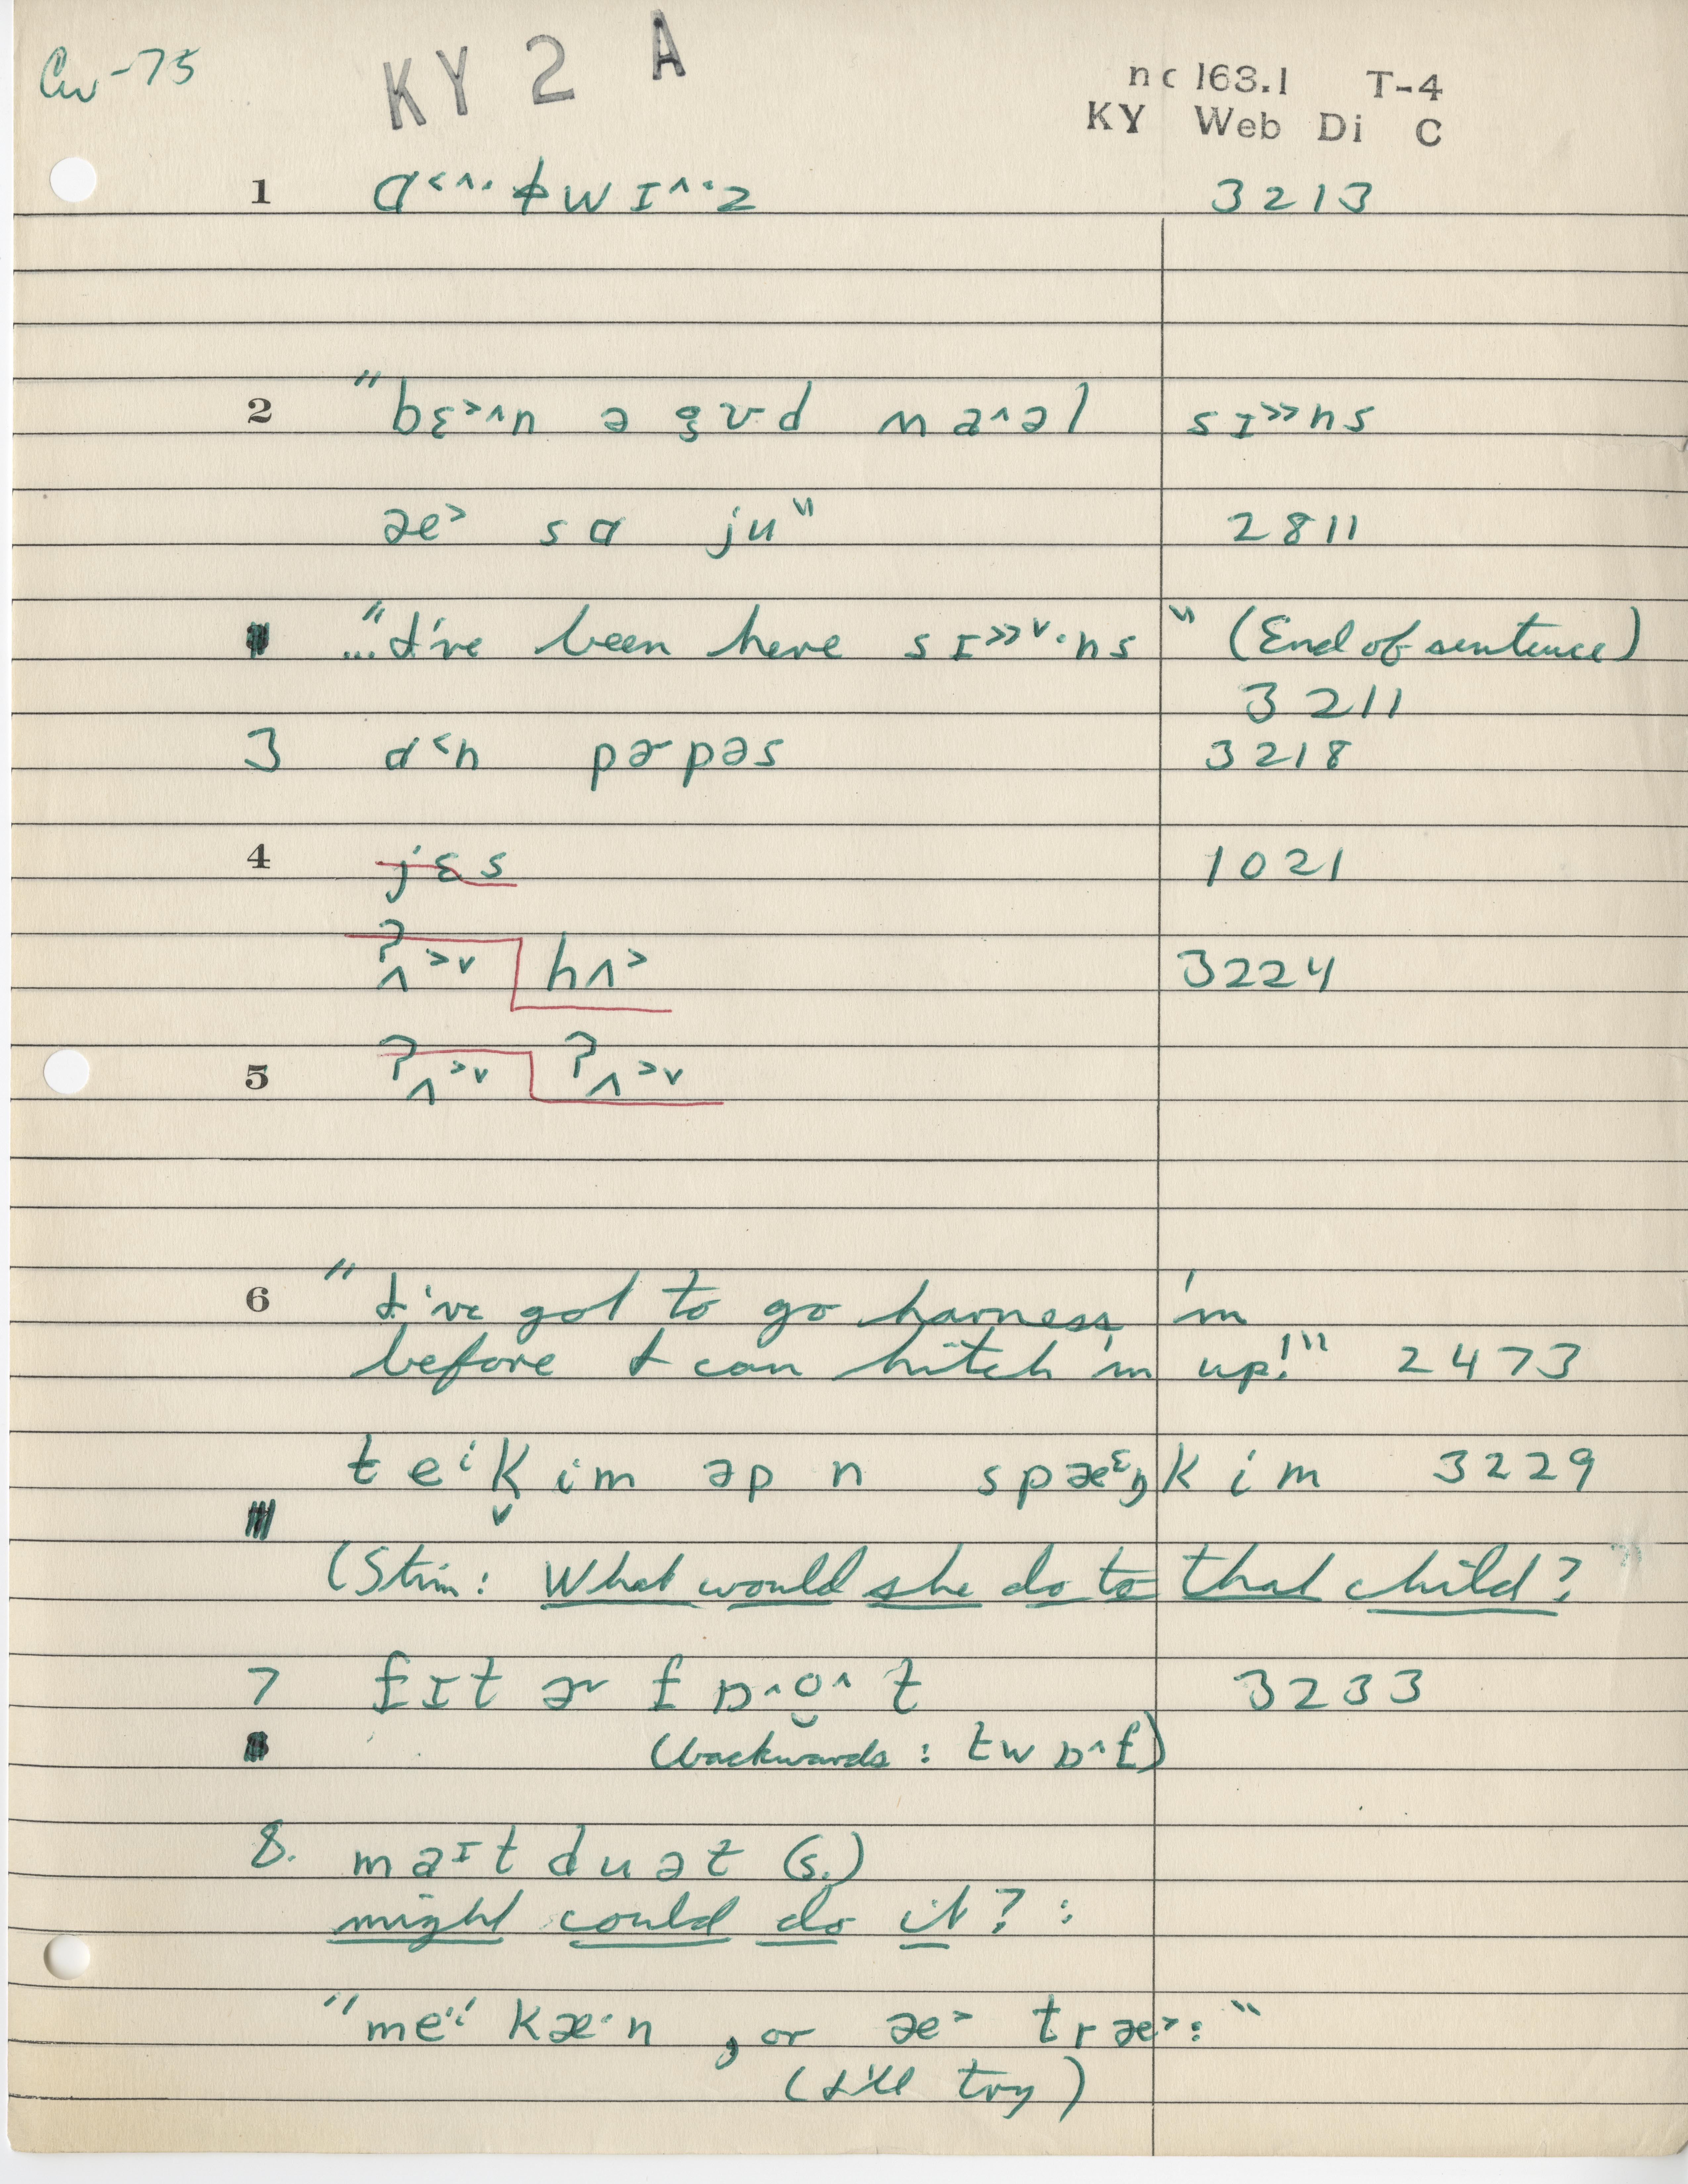 Cw-75 KY 2 A
nc 163.1 T-4
KY Web Di C
1 ɑ˂˄·ɫwɪ˄·z 3213
2 "bɛ˃˄n ə gʊd mɑ˄əl sɪ˃˃ns
æ˃ sɑ ju" 2811
..."I've been here sɪ˃˃˅·ns" (End of sentence)
3211
3 ɑ˂n pɚpəs 3218
4 jɛs 1021
ʔʌ˃˅ hʌ˃ 3224
5 ʔʌ˃˅ ʔʌ˃˅
6 "I've got to go harness 'im
before I can hitch 'im up!'" 2473
t̬eⁱk̬im əp n spæᵋŋkim 3229
(Stim: What would she do to that child?
7 fɪt ɚ fɒ˄o̯˄t̬ 3233
(backwards: twɒ˄f)
8. maɪt duət̬ (s.)
might could do it?:
"meⁱ kæ·n, or æ˃ træ˃:"
(I'll try)